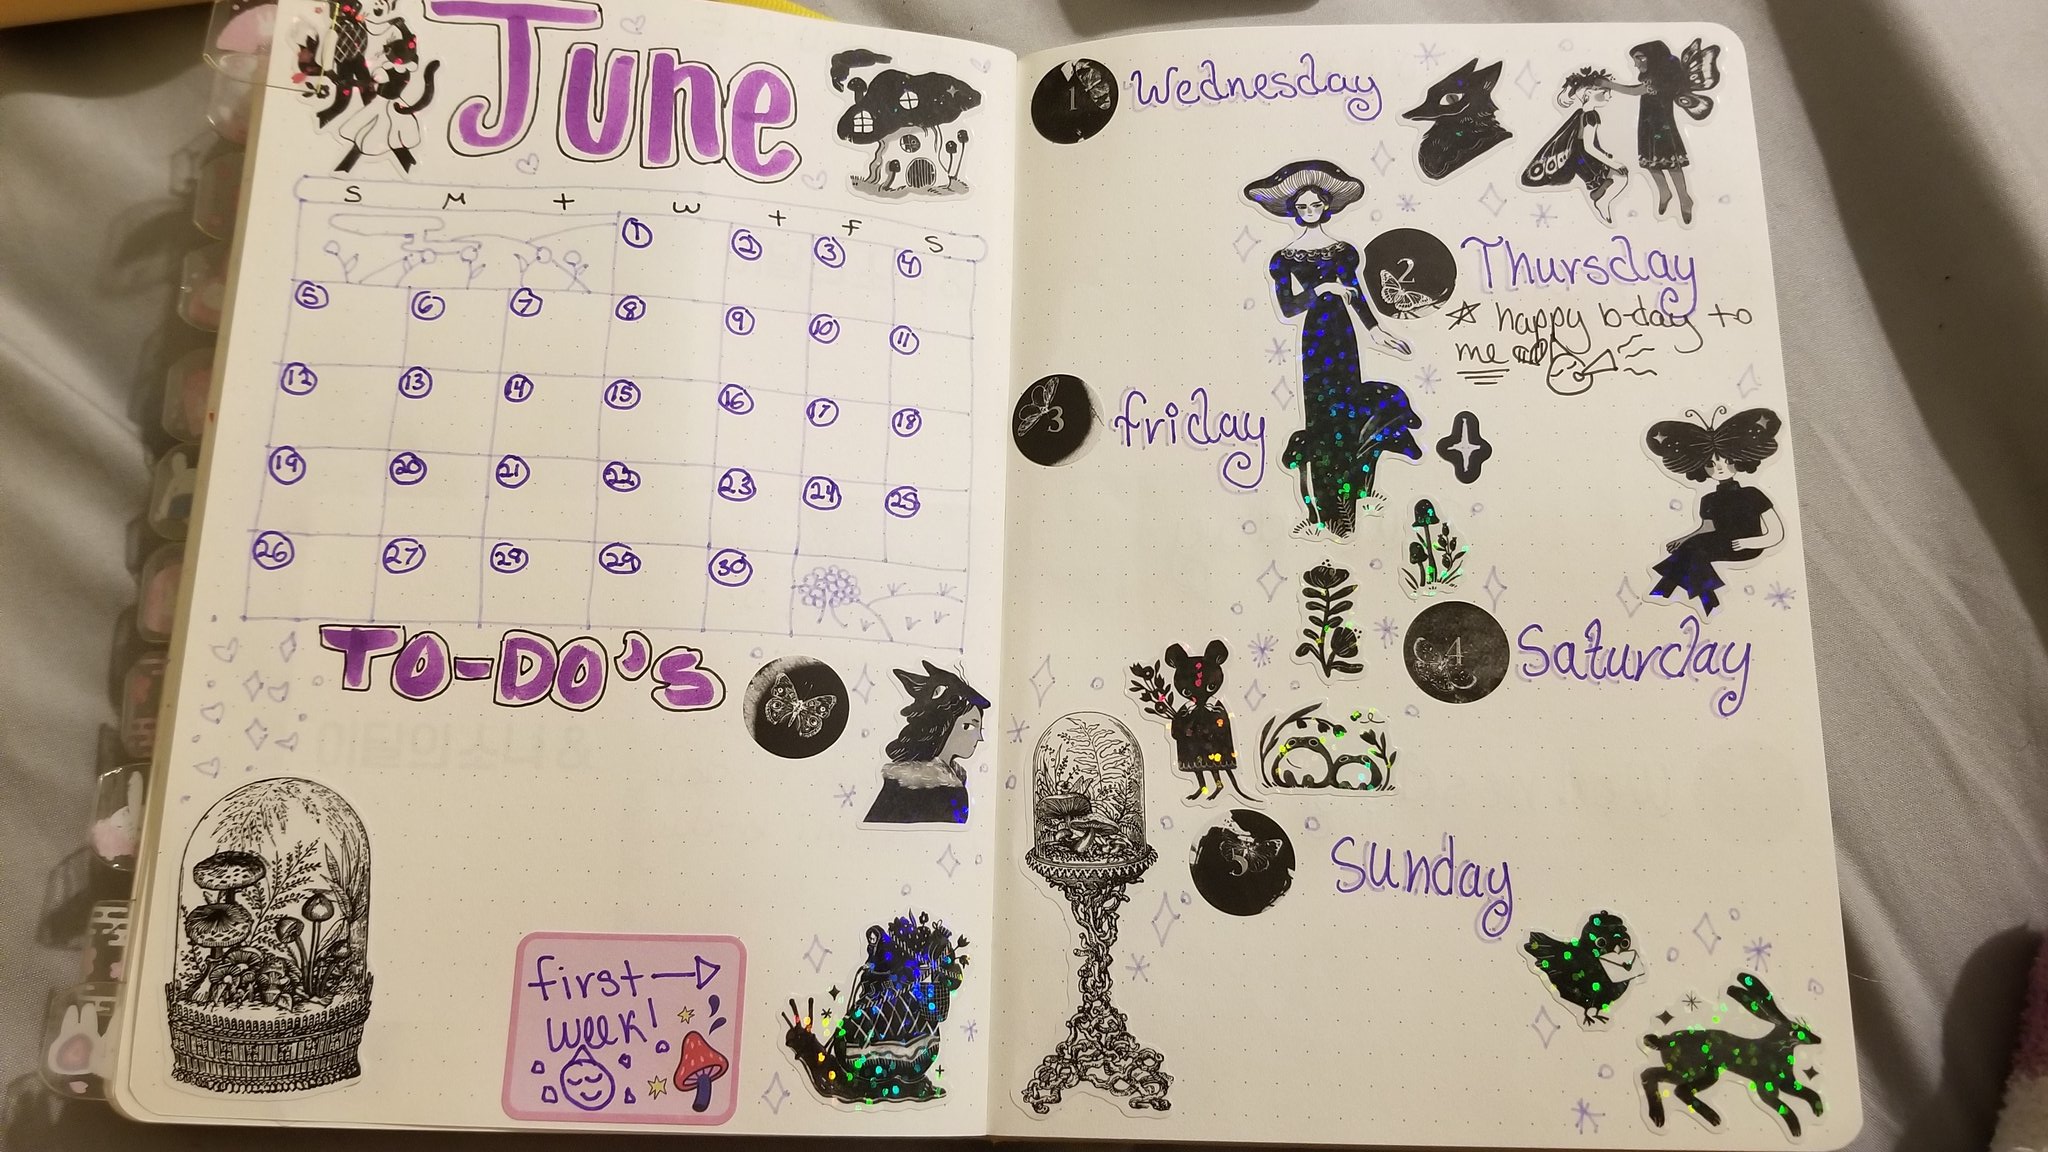 June
S M T W T F S
1 2 3 4
5 6 7 8 9 10 11
12 13 14 15 16 17 18
19 20 21 22 23 24 25
26 27 28 29 30
TO-DO'S
first
week!
1 Wednesday
2 Thursday
happy b-day to
me
3 friday
4 Saturday
5 Sunday